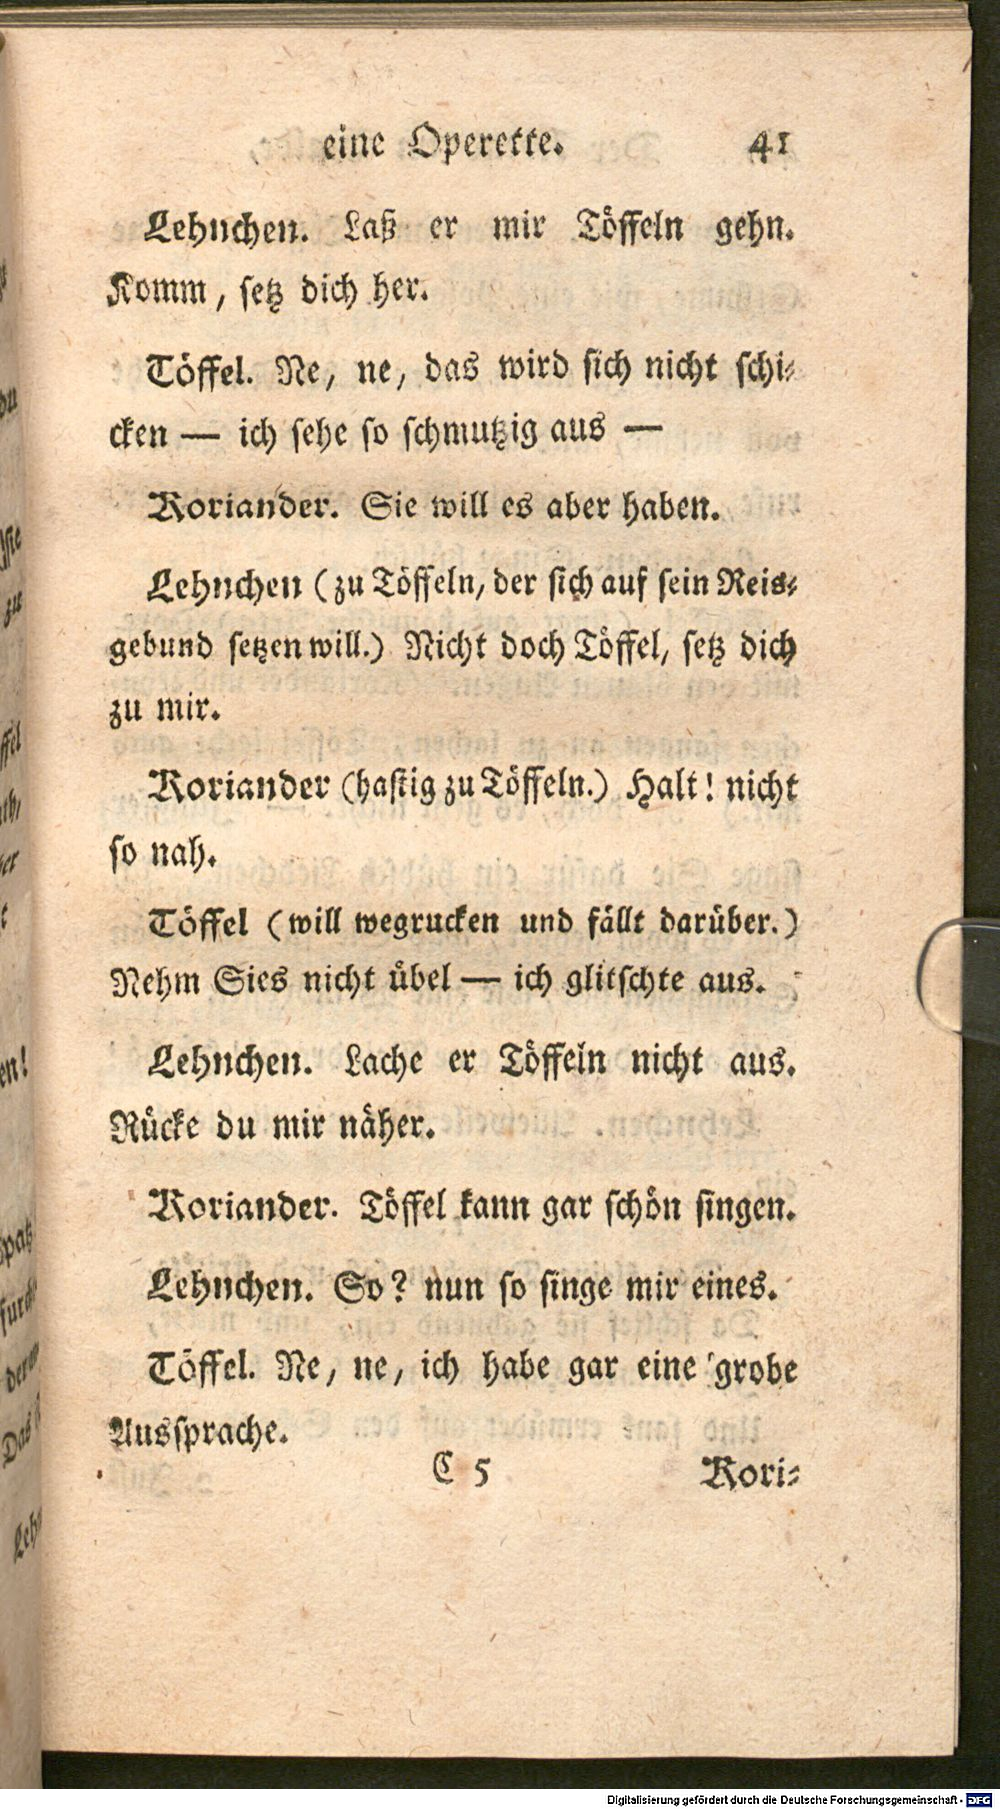 eine Operette. 41
Lehnchen. Laß er mir Töffeln gehn.
Komm, setz dich her.
Töffel. Ne, ne, das wird sich nicht schi-
cken — ich sehe so schmutzig aus —
Koriander. Sie will es aber haben.
Lehnchen (zu Töffeln, der sich auf sein Reis-
gebund setzen will.) Nicht doch Töffel, setz dich
zu mir.
Koriander (hastig zu Töffeln.) Halt! nicht
so nah.
Töffel (will wegrucken und fällt darüber.)
Nehm Sies nicht übel — ich glitschte aus.
Lehnchen. Lache er Töffeln nicht aus.
Rücke du mir näher.
Koriander. Töffel kann gar schön singen.
Lehnchen. So? nun so singe mir eines.
Töffel. Ne, ne, ich habe gar eine grobe
Aussprache.
C 5 Kori-
Digitalisierung gefördert durch die Deutsche Forschungsgemeinschaft - DFG